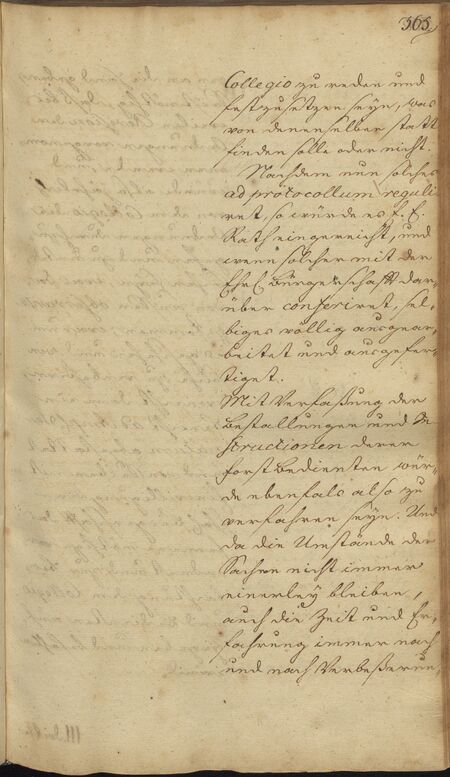 365.
Collegio zu reden und
festzusetzen seyn, was
von denenselben statt
finden solle oder nicht.
Nachdem nun solches
ad protocollum reguli
ret, so würde es E. E.
Rath eingereicht, und
wenn solcher mit der
Ehrl. Bürgerschafft dar-
über conferiret, sel-
biges völlig ausgear-
beitet und ausgefer-
tiget.
Mit Verfaßung der
Bestallungen und In
structionen derer
Forst Bedienten wür-
de ebenfals also zu
verfahren seyn. Und
da die Umstände der
Sachen nicht immer
einerley bleiben,
auch die Zeit und Er-
fahrung immer nach
und nach Verbeßerun-